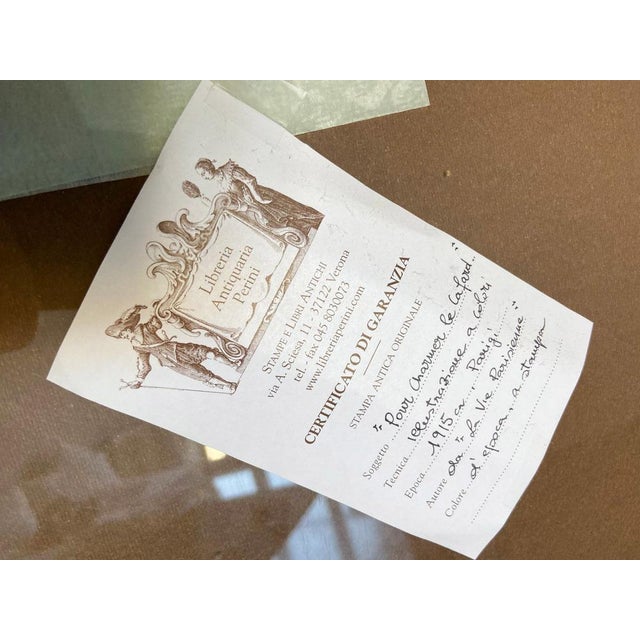 Libreria
Antiquaria
Perini
STAMPE E LIBRI ANTICHI
via A. Sciesa, 11 - 37122 Verona
tel. - fax 045 8030073
www.libreriaperini.com
CERTIFICATO DI GARANZIA
STAMPA ANTICA ORIGINALE
Soggetto "Pour charmer le cafard.."
Tecnica illustrazione a colori
Epoca 1915 ca. Parigi
Autore da "La Vie Parisienne"
Colore d'epoca, a stampa